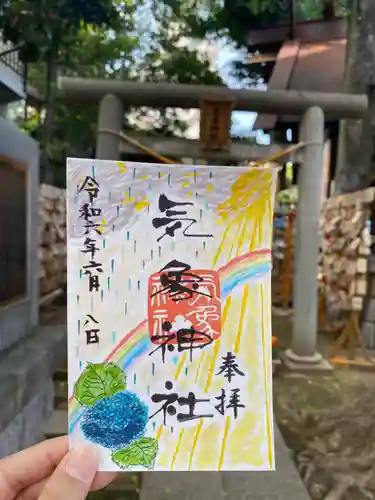 奉拝
気象神社
令和六年六月八日